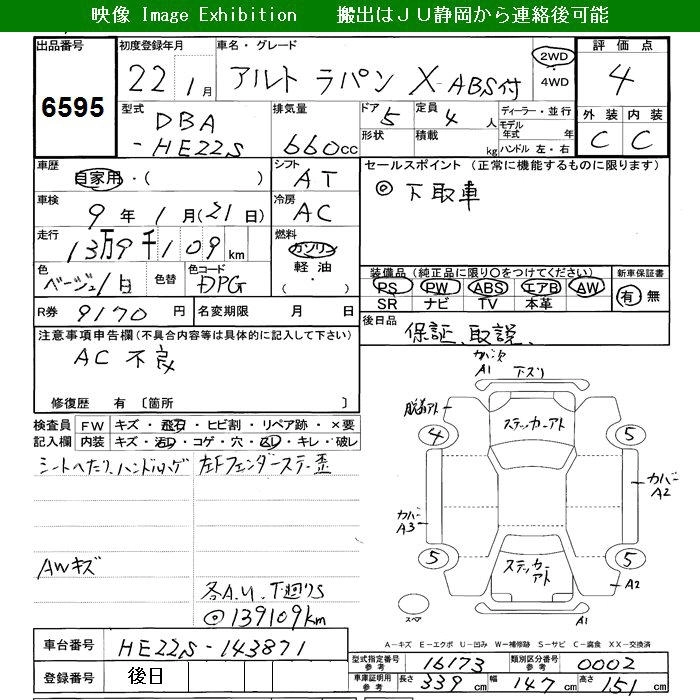 映像 Image Exhibition 搬出はＪＵ静岡から連絡後可能
出品番号 初度登録年月 車名・グレード 評価点
6595 22年 1月 アルト ラパン X-ABS付 2WD・4WD 4
型式 排気量 ドア 定員 ディーラー・並行 外装 内装
DBA-HE22S 660cc 5 4人 モデル年式 年式 C C
形状 積載 kg ハンドル 左・右
車歴 自家用・( ) シフト AT セールスポイント (正常に機能するものに限ります)
車検 9年1月(21日) 冷房 AC ◎下取車
走行 13万9千109km 燃料 ガソリン 軽油 ( ・ )
色 ベージュ/白 色替 色コード ĐPG 装備品(純正品に限り○をつけてください) 新車保証書
PS PW ABS エアB AW 有・無
SR ナビ TV 本革
R券 9170円 名変期限 月 日 後日品 保証、取説、
注意事項申告欄(不具合内容等は具体的に記入して下さい)
AC 不良
修復歴 有 〔箇所 〕
検査員記入欄 FW キズ・飛石・ヒビ割・リペア跡・×要
内装 キズ・汚レ・コゲ・穴・スレ・キレ・破レ
シートへたり、ハンドルハゲ 左Fフェンダーステー歪
AWキズ
各A.U.下廻りS
◎139109km
カバー欠 A1 下スリ
脱着アト ステッカーアト
4 5
カバー A2
カバー A3
5 5
ステッカーアト
A2
A1
スペア
A－キズ E－エクボ U－凹み W－補修跡 S－サビ C－腐食 XX－交換済
車台番号 HE22S-143871
登録番号 後日
型式指定番号 参考 16173 類別区分番号 参考 0002
車庫証明用 参考 長さ 339cm 幅 147cm 高さ 151cm